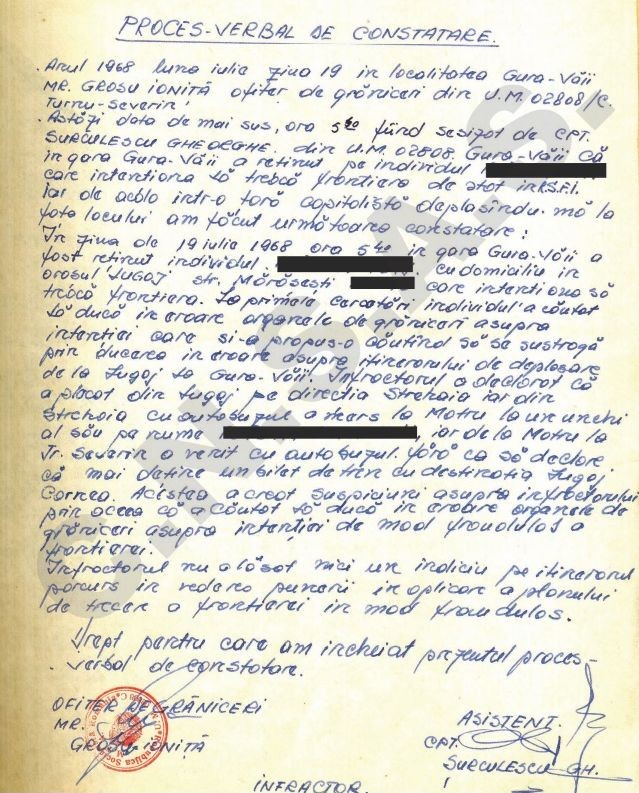 PROCES-VERBAL DE CONSTATARE.
Anul 1968 luna iulie ziua 19 in localitatea Gura-Văii
MR. GROSU IONIȚĂ ofiter de grăniceri din U.M. 02808/C.
Turnu-Severin;
Astăzi data de mai sus, ora 5 fiind sesizat de CPT.
SURCULESCU GHEORGHE. din U.M. 02808. Gura-Văii că
in gara Gura-Văii a retinut pe individul
care intentiona să treacă frontiera de stat in R.S.F.I.
iar de acolo intr-o tară capitalistă deplasîndu-mă la
fata locului am făcut următoarea constatare:
In ziua de 19 iulie 1968 ora 5 in gara Gura-Văii a
fost retinut individul: cu domiciliu in
orasul Lugoj str. Mărăsesti care intentiona să
treacă frontiera. La primele cercetări individul a căutat
să ducă in eroare organele de grăniceri asupra
intentiei care si-a propus-o căutind să se sustragă
prin ducerea in eroare asupra itinerarului de deplasare
de la Lugoj la Gura-Văii. Infractorul a declarat că
a plecat din Lugoj pe directia Strehaia iar din
Strehaia cu autobuzul a mers la Motru la un unchi
al său pe nume iar de la Motru la
Tr. Severin a venit cu autobuzul. fără ca să declare
că mai detine un bilet de tren cu destinatia Lugoj
Cornea. Acestea a creat suspiciuni asupra infractorului
prin aceea că a căutat să ducă in eroare organele de
grăniceri asupra intenției de mod fraudulos a
frontierei.
Infractorul nu a lăsat nici un indiciu pe itinerarul
parcurs in vederea punerii in aplicare a planului
de trecere a frontierei in mod fraudulos.
Drept pentru care am incheiat prezentul proces-
verbal de constatare.
OFITER DE GRĂNICERI
MR.
GROSU IONIȚĂ
ASISTENT.
CPT.
SURCULESCU GH.
INFRACTOR.
C.N.S.A.S.